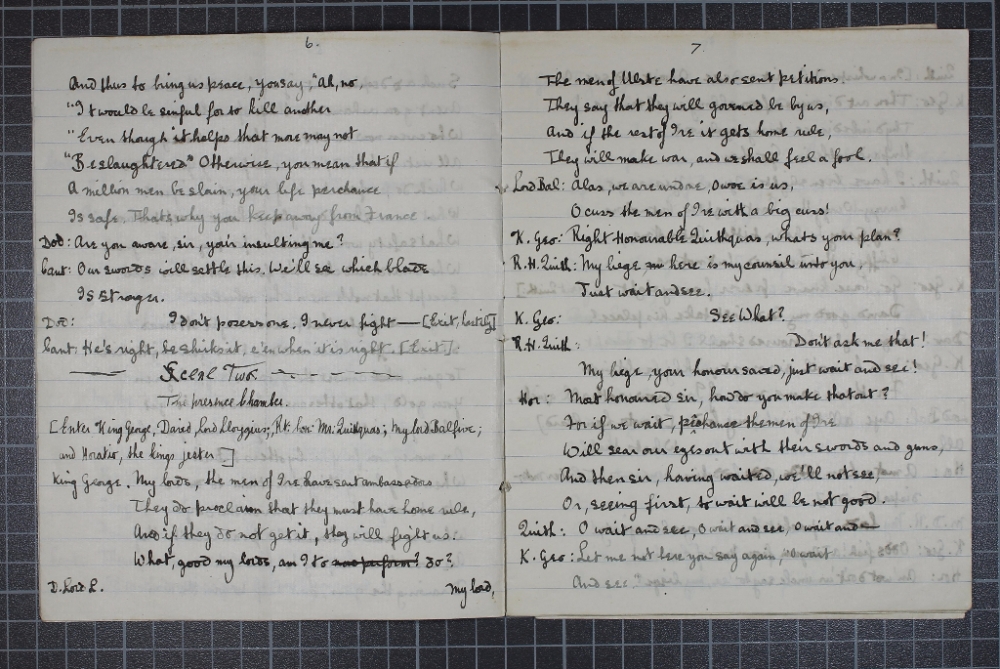 6.
And thus to bring us peace, you say, "Ah, no,
"It would be sinful for to kill another
"Even though it helps that more may not
"Be slaughtered" Otherwise, you mean that if
A million men be slain, your life perchance
Is safe. That's why you keep away from France
Dod: Are you aware, sir, you'r insulting me?
Cant: Our swords will settle this. We'll see which blade
Is stronger.
Dod: I don't possess one, I never fight — [Exit, hastily]
Cant: He's right, he shirks it, e'en when it is right. [Exit].
Scene Two
The presence Chamber.
[Enter King George, David, Lord Lloygius; Rt. hon. Mr. Quithquas; My lord Balfire;
and Horatio, the kings jester]
King George. My lords, the men of Ire have sent ambassadors
They do proclaim that they must have home rule,
And if they do not get it, they will fight us.
What, good my lords, am I to do?
D. Lord L. My lord,
7.
The men of Ulste have also sent petitions.
They say that they will governed be by us,
And if the rest of Ire it gets home rule,
They will make war, and we shall feel a fool.
Lord Bal: Alas, we are undone, O woe is us,
O curs the men of Ire with a big curs!
K. Geo: Right Honourable Quithquas, what's your plan?
R.H. Quith: My liege here is my counsil unto you,
Just wait and see.
K. Geo: See What?
R.H. Quith: Don't ask me that!
My liege, your honour saved, just wait and see!
Hor: Most honoured Sir, how do you make that out?
For if we wait, perchance the men of Ire
Will sear our eyes out with their swords and guns,
And then sir, having waited, we'll not see,
Or, seeing first, to wait will be not good.
Quith: O wait and see, O wait and see, O wait and—
K. Geo: Let me not here you say again, O wait
And see!